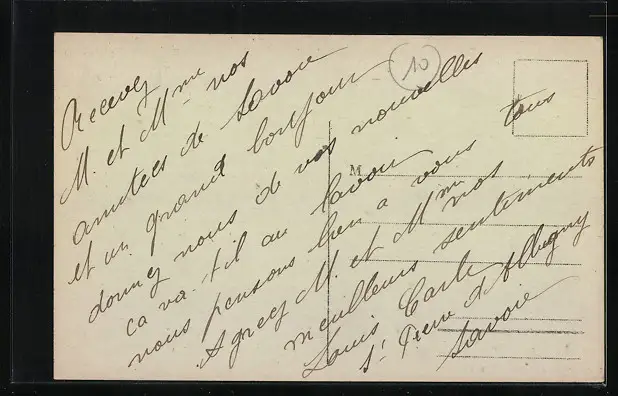 Recevez
M. et Mme nos
amitées de Savoie
et un grand bonjour
donnez nous de vos nouvelles
ca va-t-il au Savoie
nous pensons bien a vous tous
Agreez M. et Mme nos
meuilleurs sentiments
Louis Carle
St Pierre d'Albigny
Savoie
10
M